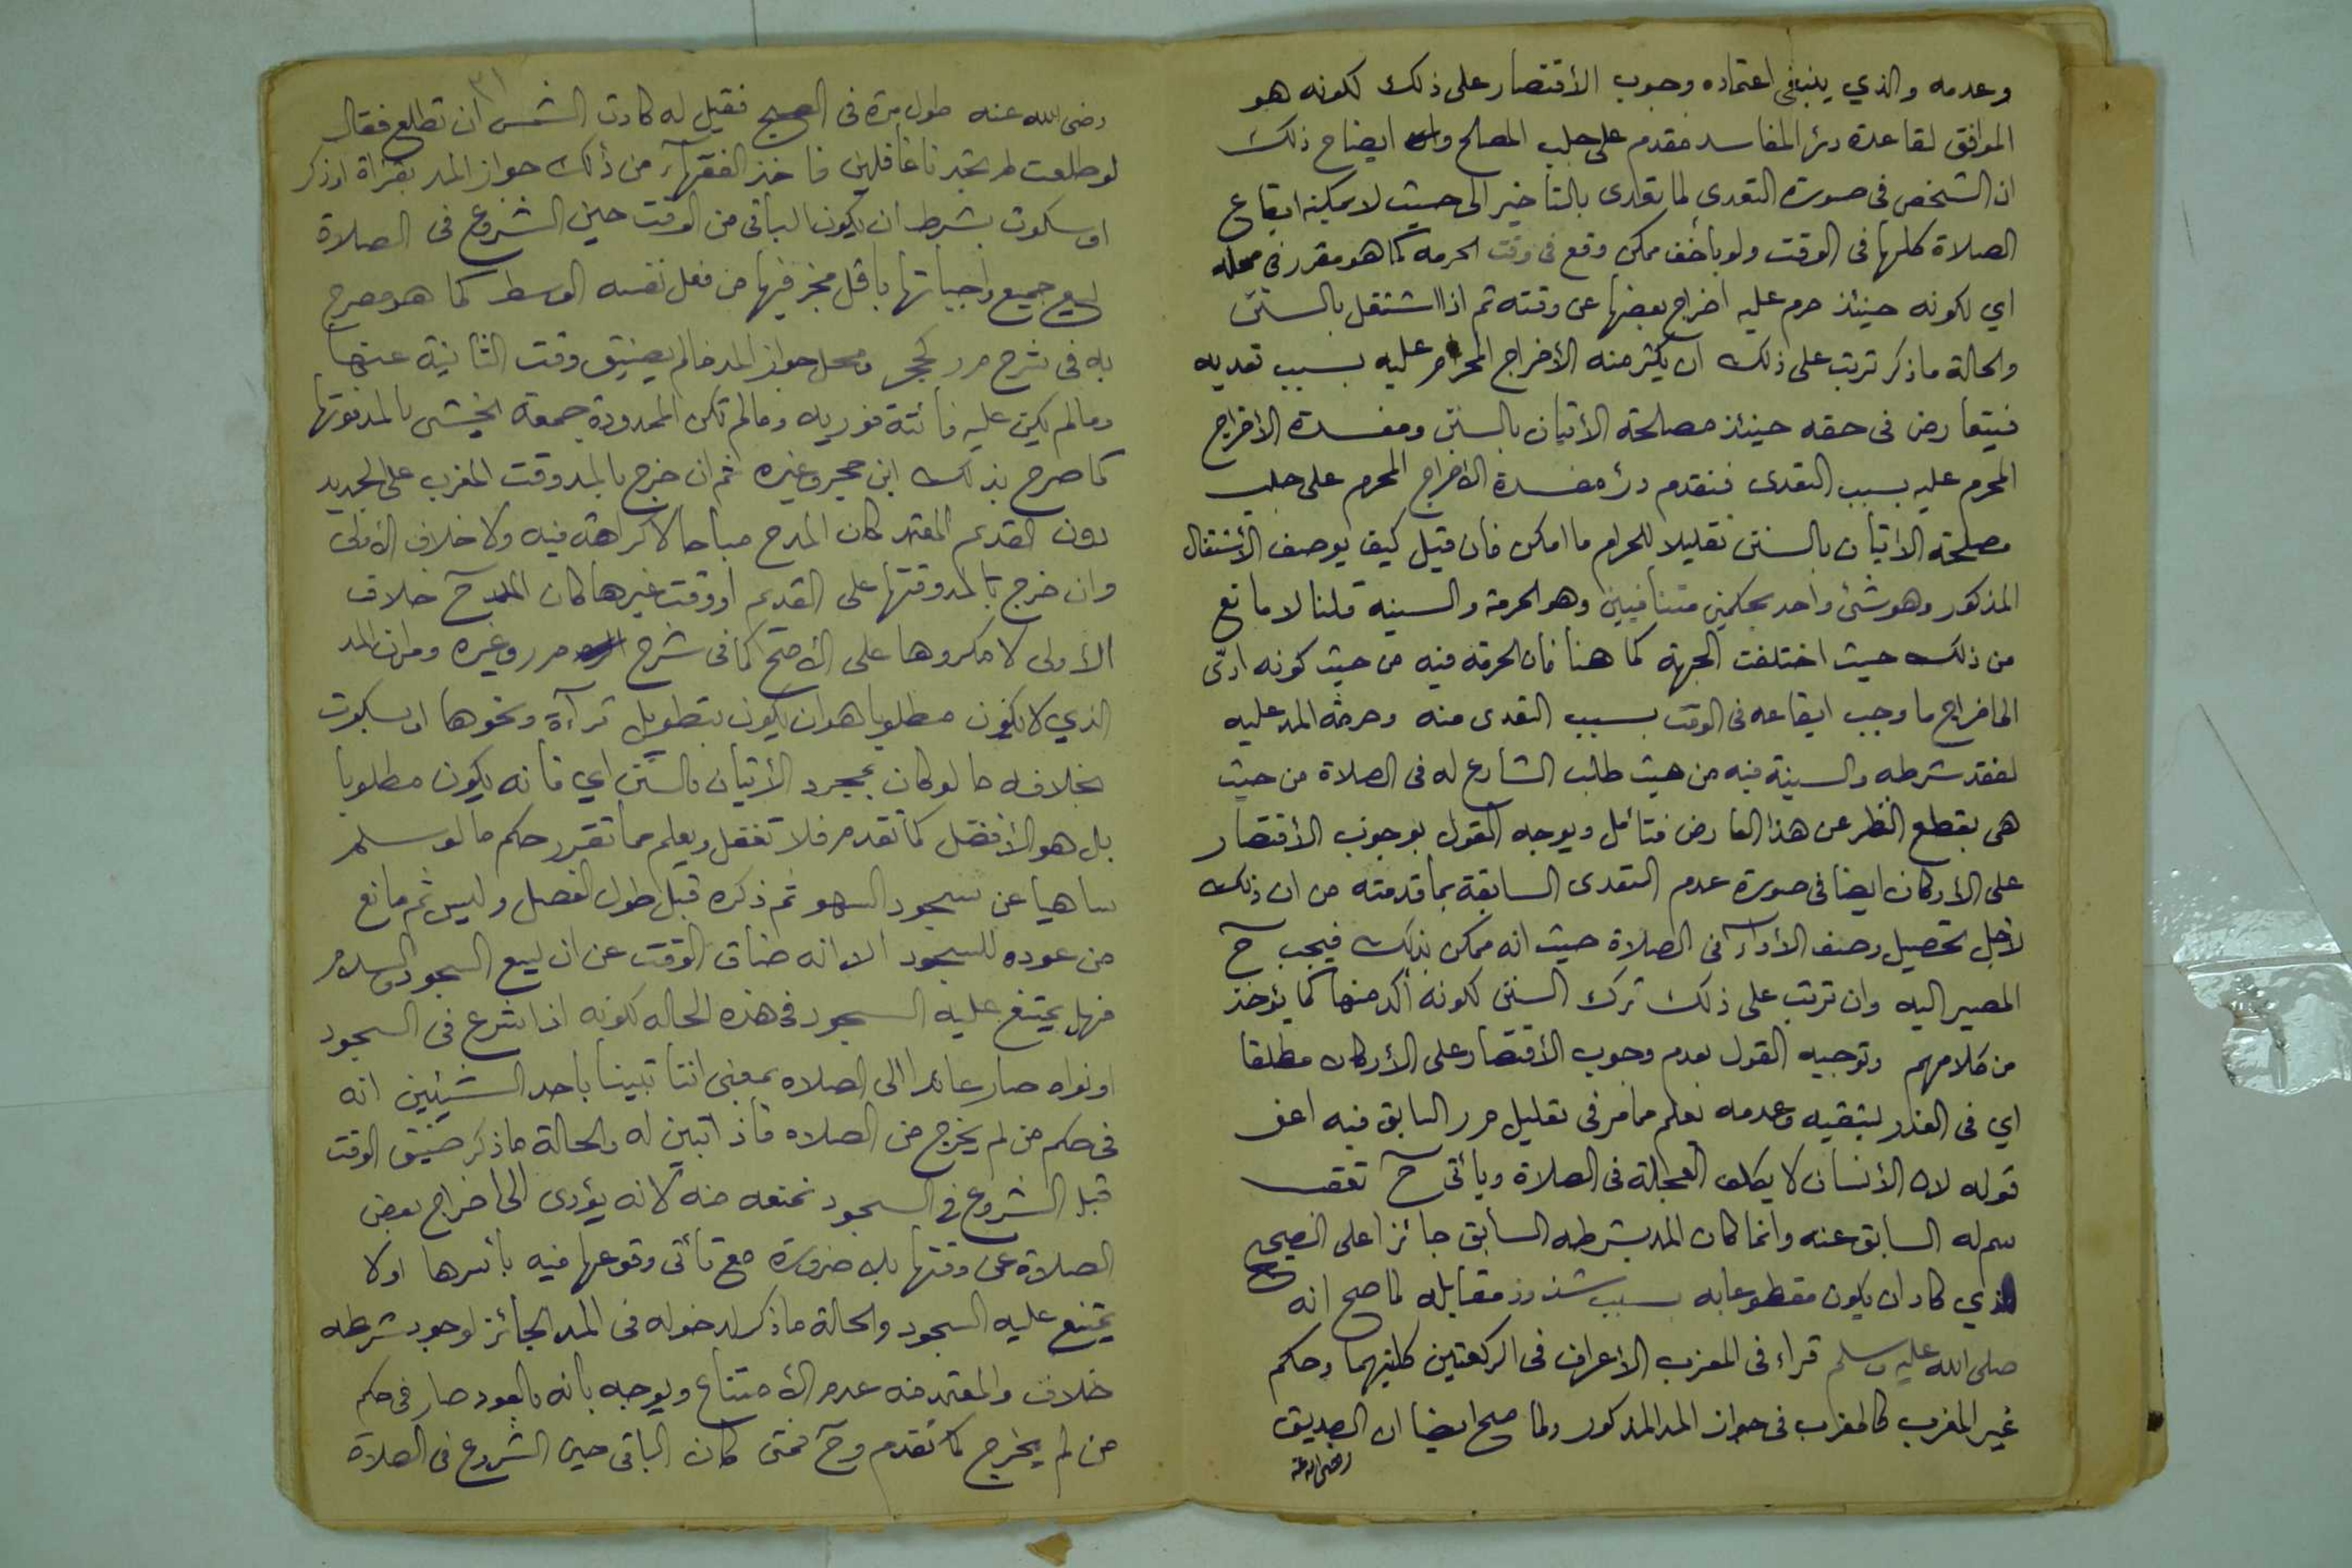 وعدمه والذي ينبغي اعتماده وجوب الأقتصار على ذلك لكونه هو
الموافق لقاعدة درء المفاسد مقدم على جلب المصالح وايضاح ذلك
ان الشخص فى صورة التعدى لما تعدى بالتأخير الى حيث لا يمكنه ايقاع
الصلاة كلها فى الوقت ولو بأخف ممكن وقع فى وقت الحرمه كما هو مقرر في محله
اي لكونه حينئذ حرم عليه اخراج بعضها عن وقته ثم اذا اشتغل بالسنن
والحالة ماذكر ترتب على ذلك ان يكثر منه الأخراج المحرم عليه بسبب تعديه
فيتعارض فى حقه حينئذ مصلحة الأتيان بالسنن ومفسدة الأخراج
المحرم عليه بسبب التعدى فنقدم درء مفسدة الاخراج المحرم على جلب
مصلحة الاتيان بالسنن تقليلا للحرام ما امكن فان قيل كيف يوصف الأشتغال
المذكور وهو شئ واحد بحكمين متنافيين وهو الحرمة والسنيه قلنا لا مانع
من ذلك حيث اختلفت الجهة كما هنا فان الحرمة فيه من حيث كونه ادّى
الى اخراج ما وجب ايقاعه فى الوقت بسبب التعدى منه وحرمة المد عليه
لفقد شرطه والسنية فيه من حيث طلب الشارع له فى الصلاة من حيث
هى بقطع النظر عن هذا العارض فتأمل ويوجه القول بوجوب الأقتصار
على الأركان ايضا فى صورة عدم التعدى السابقة بما قدمته من ان ذلك
لأجل تحصيل وصف الأداء فى الصلاة حيث انه ممكن بذلك فيجب ح
المصير اليه وان ترتب على ذلك ترك السنن لكونه أكد منها كما يؤخذ
من كلامهم وتوجيه القول بعدم وجوب الأقتصار على الأركان مطلقا
اي فى العذر بشقيه وعدمه يعلم مما مر فى تعليل م ر السابق فيه اعنى
قوله لان الأنسان لا يكلف العجلة فى الصلاة ويأتى ح تعقب
سم له السابق عنه وانما كان المد بشرطه السابق جائزا على الصحيح
الذي كاد ان يكون مقطوعا به بسبب شذوذ مقابله لما صح انه
صلى الله عليه وسلم قراء فى المغرب الاعراف فى الركعتين كلتيهما وحكم
غير المغرب كالمغرب فى جواز المد المذكور ولما صح ايضا ان الصديق
رضى الله عنه
٣١
رضى الله عنه طول مرة فى الصبح فقيل له كادت الشمس ان تطلع فقال
لو طلعت لم تجدنا غافلين فاخذ الفقهاء من ذلك جواز المد بقراة او ذكر
او سكوت بشرط ان يكون الباقى من الوقت حين الشروع فى الصلاة
يسع جميع واجباتها باقل مجز فيها من فعل نفسه الوسط كما هو مصرح
به فى شرح م ر كحجر ومحل جواز المد مالم يضيق وقت الثانية عنها
ومالم يكن عليه فائتة فوريه ومالم تكن الممدودة جمعة لخيشى بالمد فوتها
كما صرح بذلك ابن حجر وغيره ثم ان خرج بالمد وقت المغرب على الجديد
دون القديم المعتمد كان المد ح مباحا لا كراهة فيه ولا خلاف الأولى
وان خرج بالمد وقتها على القديم او وقت غيرها كان المد ح خلاف
الأولى لا مكروها على الأصح كما فى شرح م ر وغيره ومر ان المد
الذي لا يكون مطلوبا هو ان يكون بتطويل قرآءة ونحوها او بسكوت
بخلافه ما لو كان بمجرد الأتيان بالسنن اي فانه يكون مطلوبا
بل هو الأفضل كما تقدم فلا تغفل ويعلم مما تقرر حكم ما لو سلم
ساهيا عن سجود السهو ثم ذكره قبل طول الفصل وليس ثم مانع
من عوده للسجود الا انه ضاق الوقت عن ان يسع السجود والسلام
فهل يمتنع عليه السجود فى هذه الحاله لكونه اذا شرع فى السجود
او نواه صار عائدا الى الصلاه بمعنى اننا تبينا باحد الشيئين انه
فى حكم من لم يخرج من الصلاه فاذا تبين له والحالة ماذكر ضيق الوقت
قبل الشروع فى السجود نمنعه منه لانه يؤدى الى اخراج بعض
الصلاة عن وقتها بلا ضرورة مع تأتى وقوعها فيه بأسرها اولا
يمتنع عليه السجود والحالة ماذكر لدخوله فى المد الجائز لوجود شرطه
خلاف والمعتمد منه عدم الأمتناع ويوجه بأنه بالعود صار فى حكم
من لم يخرج كما تقدم وح فمتى كان الباقى حين الشروع فى الصلاة